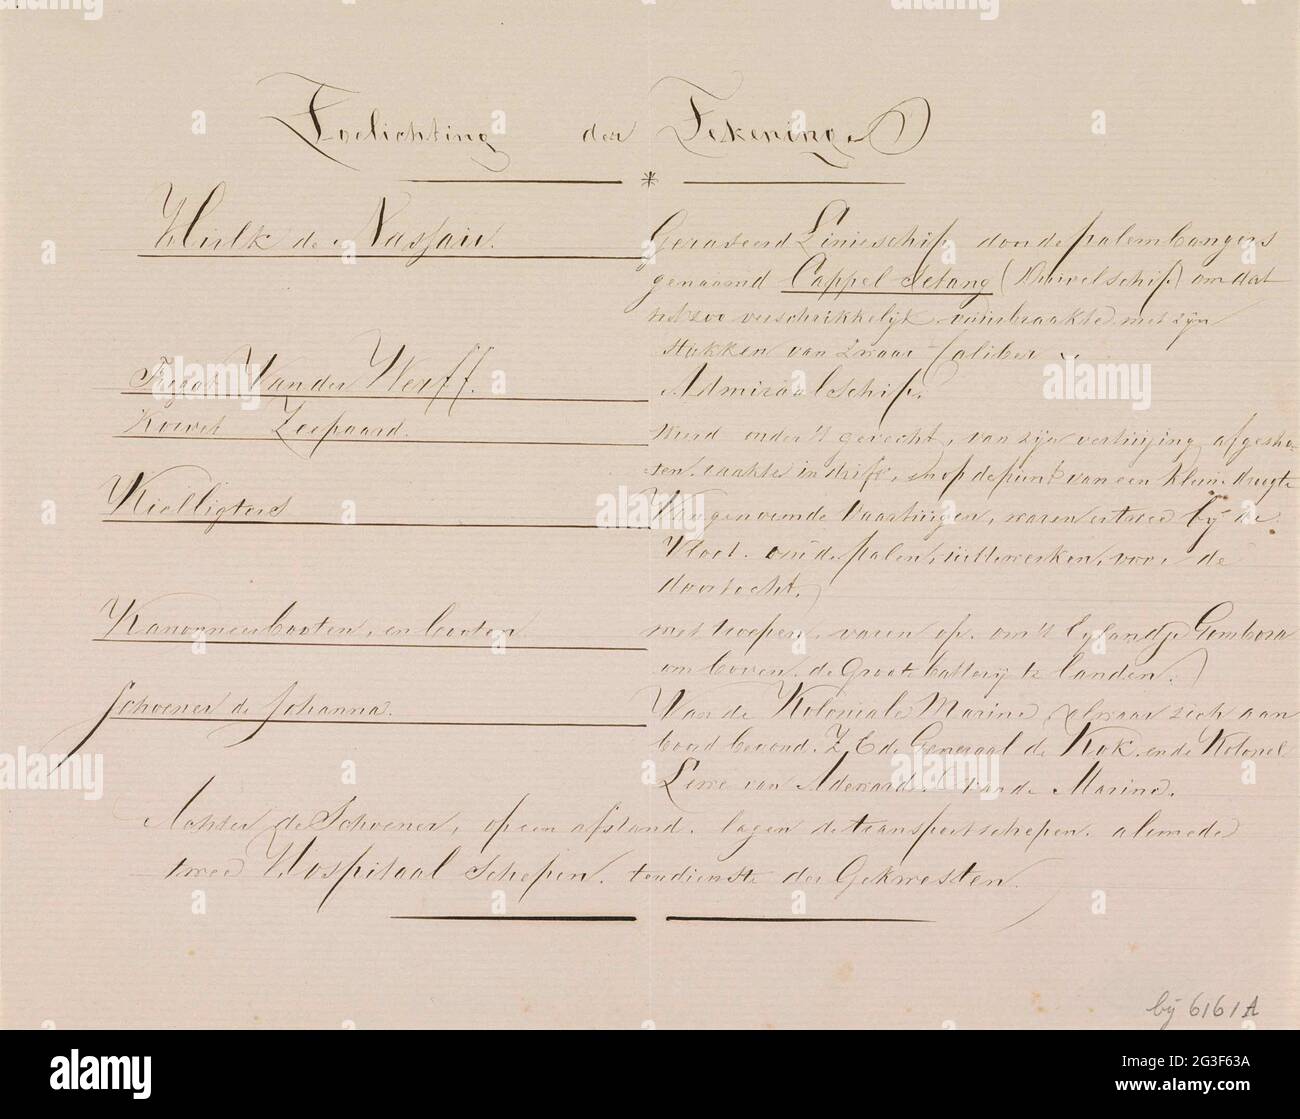 Toelichting der Tekening
*
Hulk de Nassau. Geraseerd Linieschip, door de palembangers
genaamd Cappel Setang (Duivelschip) om dat
het zoo verschrikkelijk vuurbraakte met zijn
stukken van zwaar Caliber
Fregat Van der Werff. Admiraalschip.
Korvet Zeepaard. Werd onder 't gevecht, van zijn vertuijing afgescho-
ten, raakte in drift, en op de punt van een klein droogte
Kielligters Vangenoemde Vaartuigen, waren er twee bij de
Vloot. om de palen, uittewerken, voor de
doortocht.
Kanonneerbooten, en booten met troepen, varen op. om 't Eylandje Gombora
om boven de Groote batterij te landen.
Schoener de Johanna. Van de Koloniale Marine, alwaar zich aan
boord bevond. Z.E de Generaal de Kok. en de Kolonel
Lewe van Aderard. van de Marine.
Achter de Schoener, op een afstand. lagen de transportschepen. alsmede
twee Hospitaal Schepen. ten dienste der Gekwesten.
bij 6161A
alamy
Image ID: 2G3F63A
www.alamy.com